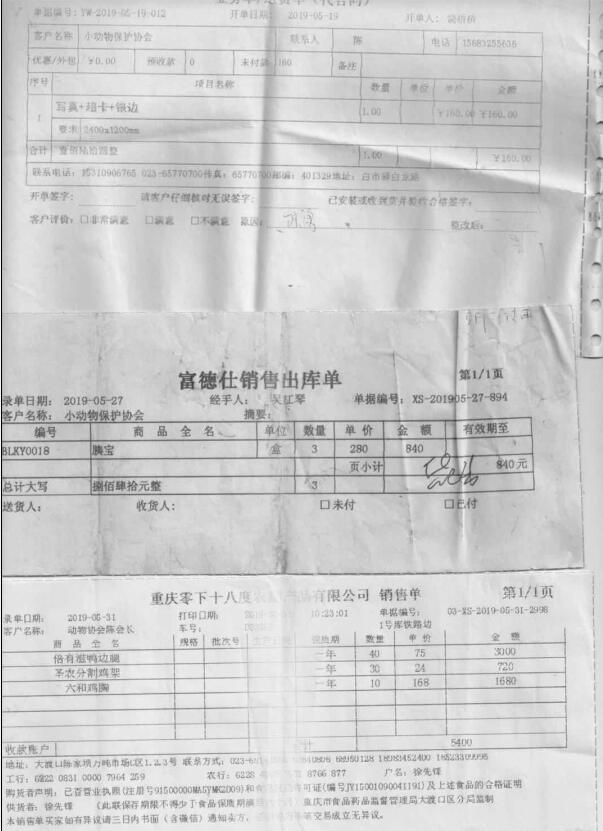 单据编号: YW-2019-05-19-012 开单日期: 2019-05-19 开单人:
客户名称 小动物保护协会 联系人 陈 电话 15683255636
优惠/外包 ￥0.00 预收款 0 未付款 160 备注
序号 项目名称 数量 单位 单价 金额
1 写真+超卡+银边 1.00 ￥160.00 ￥160.00
要求 2400x1200mm
合计 壹佰陆拾圆整 1.00 ￥160.00
联系电话: 15310906765 023-65770700传真: 65770700邮编: 401329地址:
开单签字: 请客户仔细核对无误签字: 已安装或收到货并验收合格签字:
客户评价: □非常满意 □满意 □不满意 原因: 整改后:
富德仕销售出库单 第1/1页
录单日期: 2019-05-27 经手人: 吴红琴 单据编号: XS-201905-27-894
客户名称: 小动物保护协会 摘要:
编号 商品全名 单位 数量 单价 金额 有效期至
BLKY0018 胰宝 盒 3 280 840
页小计 840元
总计大写 捌佰肆拾元整 3
送货人: 收货人: □未付 □已付
重庆零下十八度农 产品有限公司 销售单 第1/1页
录单日期: 2019-05-31 打印日期: 10:23:01 单据编号: 03-XS-2019-05-31-2998
客户名称: 动物协会陈会长 车号: 1号库铁路边
商品全名 规格 批次号 保质期 数量 单价 金额
倍有滋鸭边腿 一年 40 75 3000
圣农分割鸡架 一年 30 24 720
六和鸡胸 一年 10 168 1680
收款账户 5400
地址: 大渡口陈家坝万吨市场C区1.2.3号 联系方式: 023-68950128 18983452400 18523309998
工行: 6222 0831 0000 7964 259 农行: 6228 8766 877 户名: 徐先锋
购货者声明: 已查营业执照(注册号91500000MA5YMG2D09)和 许可证(编号JY15001090041191)及上述食品的合格证明
供货者: 徐先锋 (此联保存期限不得少于食品保质期满 重庆市食品药品监督管理局大渡口区分局监制
本销售单买家如有异议请三日内书面(含微信)通知卖方, 交易成立无异议。